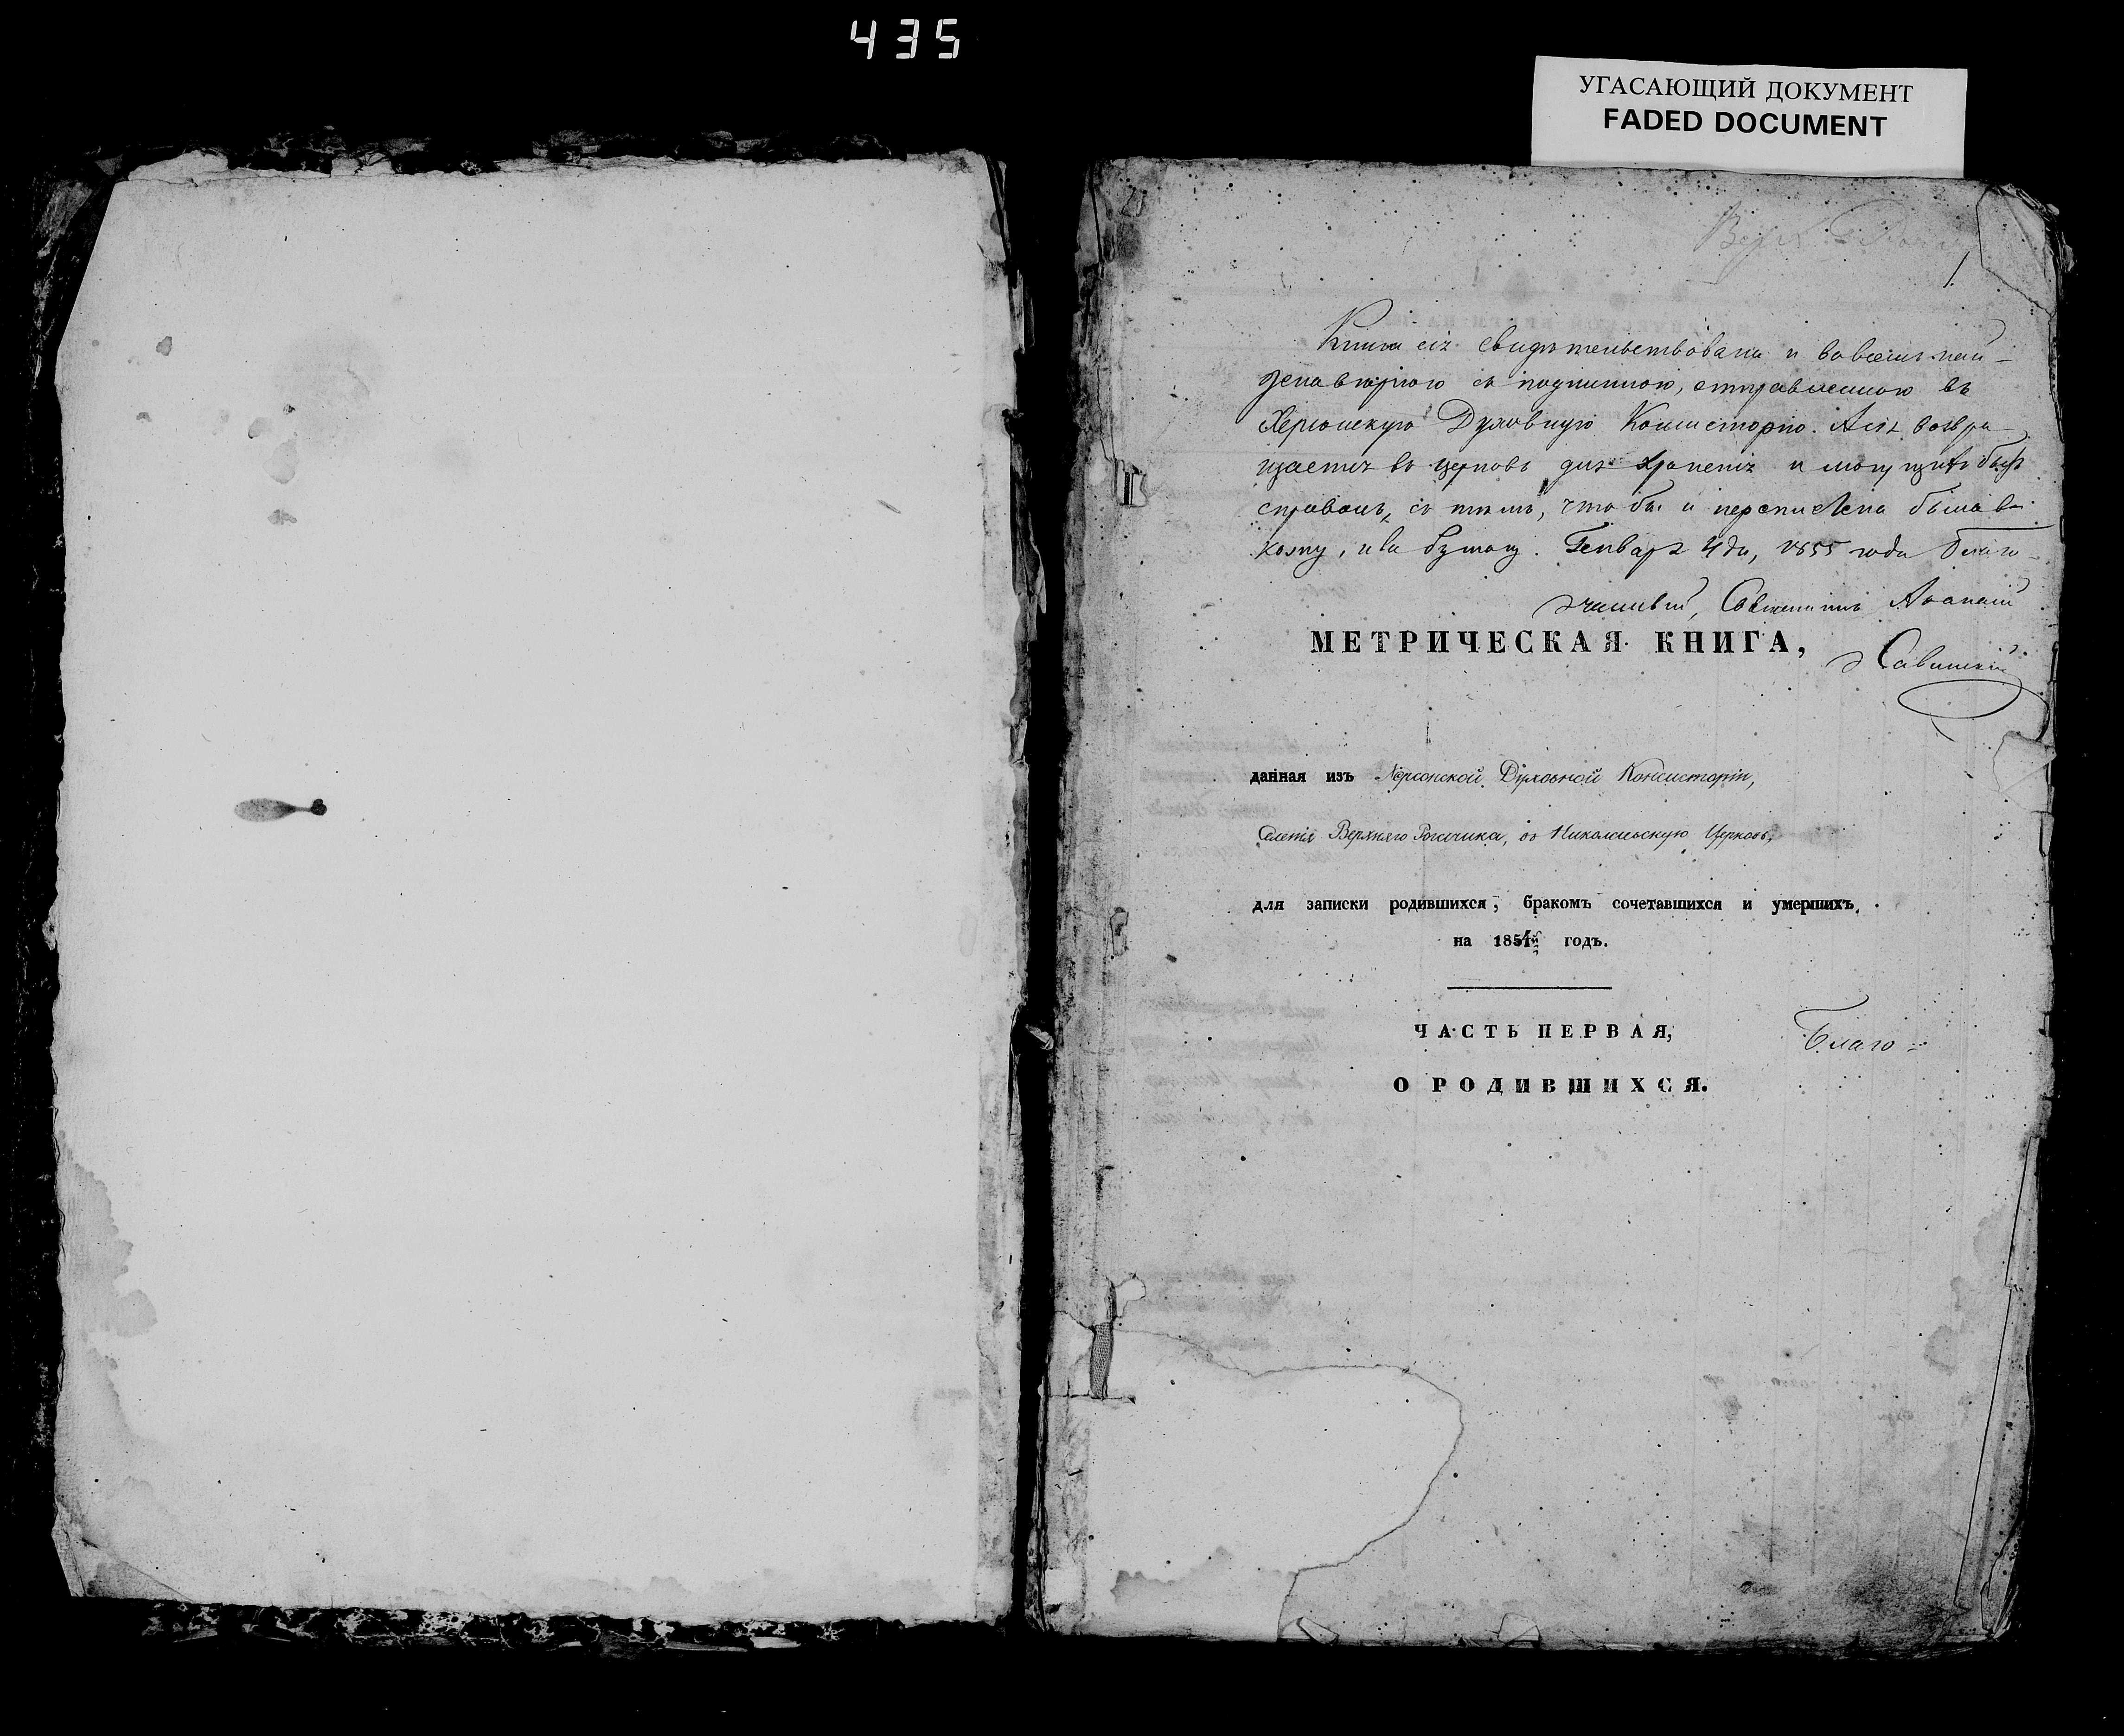 435
УГАСАЮЩИЙ ДОКУМЕНТ
FADED DOCUMENT
1.
Книга сія свидѣтельствована и во всемъ най-
дена вѣрною съ подлинною, отправленною въ
Херсонскую Духовную Консисторію. А сія возвра-
щается въ церковь для храненія и могущихъ быть
справокъ, съ тѣмъ, чтобы и переплетена была въ
кожу, и въ бумагу. Генваря 4 дня, 1855 года Благо-
чинный, Священникъ
Савицкій
МЕТРИЧЕСКАЯ КНИГА,
данная изъ Херсонской Духовной Консисторіи,
Селенія Верхняго Рогачика, въ Николаевскую Церковь,
для записки родившихся, бракомъ сочетавшихся и умершихъ,
на 1854й годъ.
ЧАСТЬ ПЕРВАЯ,
Благо-
О РОДИВШИХСЯ.